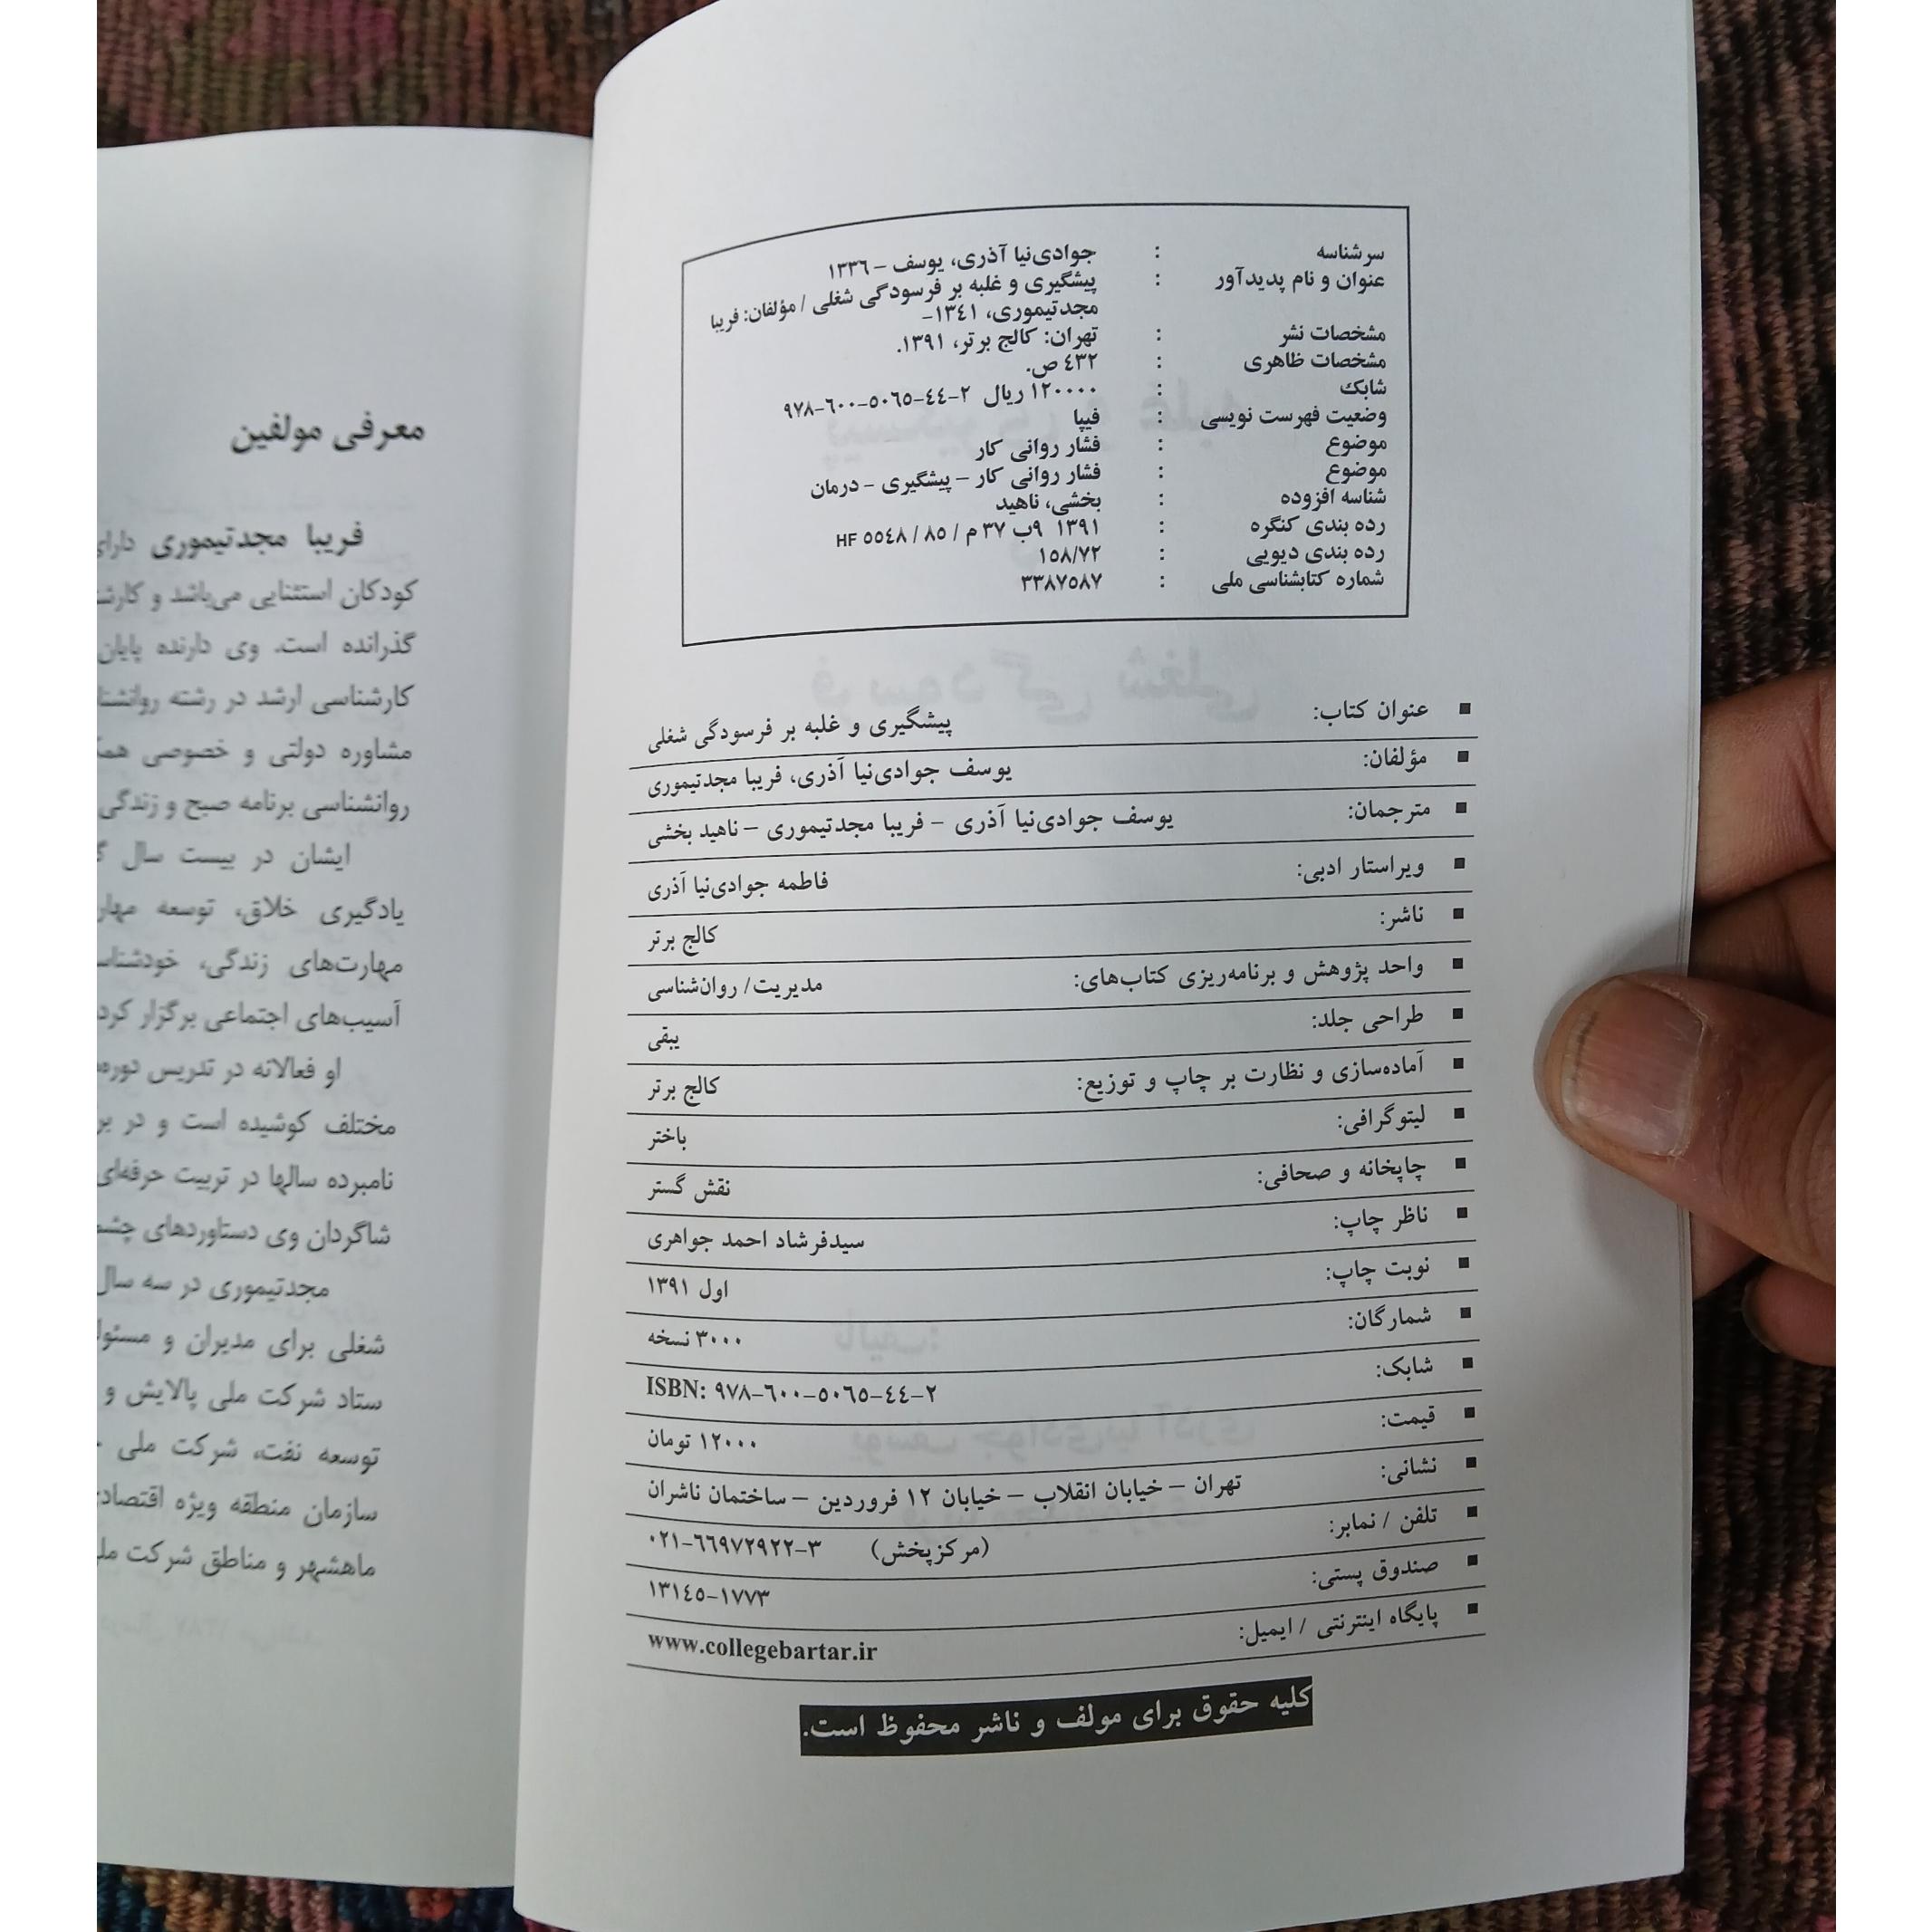 سرشناسه : جوادی‌نیا آذری، یوسف – ۱۳۳۶
عنوان و نام پدیدآور : پیشگیری و غلبه بر فرسودگی شغلی / مؤلفان: فریبا
مجدتیموری، ۱۳۴۱-
مشخصات نشر : تهران: کالج برتر، ۱۳۹۱.
مشخصات ظاهری : ۴۳۲ ص.
شابک : ۱۲۰۰۰۰ ریال ۲-۴۴-۵۰۶۵-۶۰۰-۹۷۸
وضعیت فهرست نویسی : فیپا
موضوع : فشار روانی کار
موضوع : فشار روانی کار – پیشگیری – درمان
شناسه افزوده : بخشی، ناهید
رده بندی کنگره : ۱۳۹۱ ۹ب ۳۷ م / ۸۵ / HF ۵۵۴۸
رده بندی دیویی : ۱۵۸/۷۲
شماره کتابشناسی ملی : ۳۳۸۷۵۸۷
■ عنوان کتاب: پیشگیری و غلبه بر فرسودگی شغلی
■ مؤلفان: یوسف جوادی‌نیا آذری، فریبا مجدتیموری
■ مترجمان: یوسف جوادی‌نیا آذری – فریبا مجدتیموری – ناهید بخشی
■ ویراستار ادبی: فاطمه جوادی‌نیا آذری
■ ناشر: کالج برتر
■ واحد پژوهش و برنامه‌ریزی کتاب‌های: مدیریت/ روان‌شناسی
■ طراحی جلد: یبقی
■ آماده‌سازی و نظارت بر چاپ و توزیع: کالج برتر
■ لیتوگرافی: باختر
■ چاپخانه و صحافی: نقش گستر
■ ناظر چاپ: سیدفرشاد احمد جواهری
■ نوبت چاپ: اول ۱۳۹۱
■ شمارگان: ۳۰۰۰ نسخه
■ شابک: ISBN: ۹۷۸-۶۰۰-۵۰۶۵-۴۴-۲
■ قیمت: ۱۲۰۰۰ تومان
■ نشانی: تهران – خیابان انقلاب – خیابان ۱۲ فروردین – ساختمان ناشران
■ تلفن / نمابر: (مرکزپخش) ۰۲۱-۶۶۹۷۲۹۲۲-۳
■ صندوق پستی: ۱۳۱۴۵-۱۷۷۳
■ پایگاه اینترنتی / ایمیل: www.collegebartar.ir
کلیه حقوق برای مولف و ناشر محفوظ است.
معرفی مولفین
فریبا مجدتیموری دارای
کودکان استثنایی می‌باشد و
گذرانده است. وی دارنده پایان
کارشناسی ارشد در رشته
مشاوره دولتی و خصوصی
روانشناسی برنامه صبح و زندگی
ایشان در بیست سال
یادگیری خلاق، توسعه
مهارت‌های زندگی،
آسیب‌های اجتماعی برگزار
او فعالانه در تدریس
مختلف کوشیده است و در
نامبرده سالها در تربیت حرفه‌ای
شاگردان وی دستاوردهای
مجدتیموری در سه سال
شغلی برای مدیران و
ستاد شرکت ملی پالایش و
توسعه نفت، شرکت ملی
سازمان منطقه ویژه
ماهشهر و مناطق شرکت